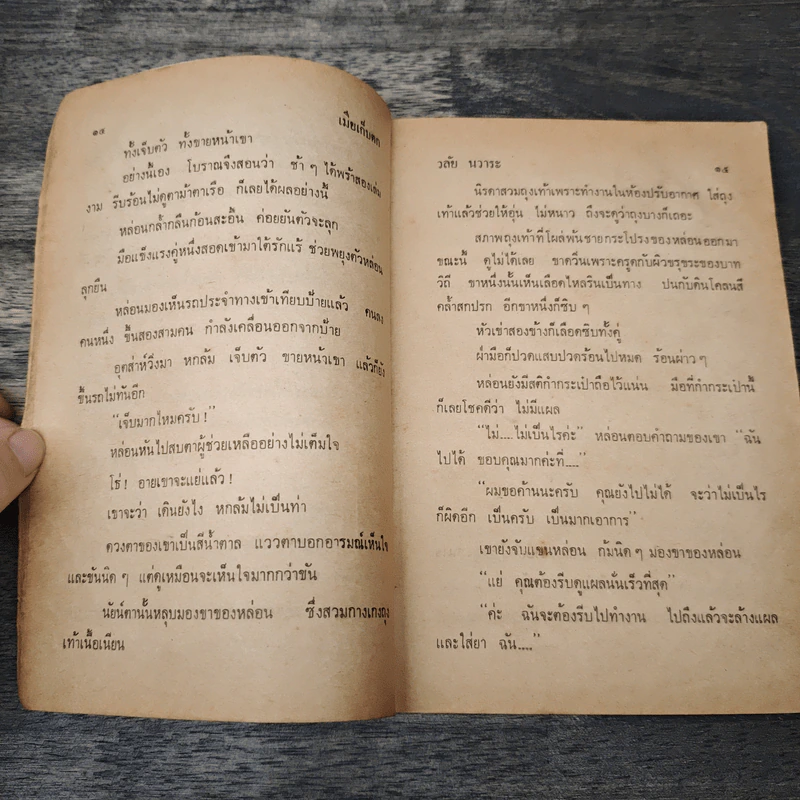 ๑๔
เมียเก็บตก
ทั้งเจ็บตัว ทั้งขายหน้าเขา
อย่างนี้เอง โบราณจึงสอนว่า ช้า ๆ ได้พร้าสองเล่ม
งาม รีบร้อนไม่ดูตาม้าตาเรือ ก็เลยได้ผลอย่างนี้
หล่อนกล้ำกลืนก้อนสะอื้น ค่อยยันตัวจะลุก
มือแข็งแรงคู่หนึ่งสอดเข้ามาใต้รักแร้ ช่วยพยุงตัวหล่อน
ลุกยืน
หล่อนมองเห็นรถประจำทางเข้าเทียบป้ายแล้ว คนลง
คนหนึ่ง ขึ้นสองสามคน กำลังเคลื่อนออกจากป้าย
อุตส่าห์วิ่งมา หกล้ม เจ็บตัว ขายหน้าเขา แล้วก็ยัง
ขึ้นรถไม่ทันอีก
“เจ็บมากไหมครับ !”
หล่อนหันไปสบตาผู้ช่วยเหลืออย่างไม่เต็มใจ
โธ่ ! อายเขาจะแย่แล้ว !
เขาจะว่า เดินยังไง หกล้มไม่เป็นท่า
ดวงตาของเขาเป็นสีน้ำตาล แววตาบอกอารมณ์เห็นใจ
และขันนิด ๆ แต่ดูเหมือนจะเห็นใจมากกว่าขัน
นัยน์ตานั้นหลุบมองขาของหล่อน ซึ่งสวมกางเกงถุง
เท้าเนื้อเนียน
วลัย นวาระ
๑๕
นิรดาสวมถุงเท้าเพราะทำงานในห้องปรับอากาศ ใส่ถุง
เท้าแล้วช่วยให้อุ่น ไม่หนาว ถึงจะดูว่าถุงบางก็เถอะ
สภาพถุงเท้าที่โผล่พ้นชายกระโปรงของหล่อนออกมา
ขณะนี้ ดูไม่ได้เลย ขาดวิ่นเพราะครูดกับผิวขรุขระของบาท
วิถี ขาหนึ่งนั้นเห็นเลือดไหลรินเป็นทาง ปนกับดินโคลนสี
คล้ำสกปรก อีกขาหนึ่งก็ซิบ ๆ
หัวเข่าสองข้างก็เลือดซิบทั้งคู่
ฝ่ามือก็ปวดแสบปวดร้อนไปหมด ร้อนผ่าว ๆ
หล่อนยังมีสติกำกระเป๋าถือไว้แน่น มือที่กำกระเป๋านี้
ก็เลยโชคดีว่า ไม่มีแผล
“ไม่....ไม่เป็นไรค่ะ” หล่อนตอบคำถามของเขา “ฉัน
ไปได้ ขอบคุณมากค่ะที่....”
“ผมขอค้านนะครับ คุณยังไปไม่ได้ จะว่าไม่เป็นไร
ก็ผิดอีก เป็นครับ เป็นมากเอาการ”
เขายังจับแขนหล่อน ก้มนิด ๆ มองขาของหล่อน
“แย่ คุณต้องรีบดูแผลนั่นเร็วที่สุด”
“ค่ะ ฉันจะต้องรีบไปทำงาน ไปถึงแล้วจะล้างแผล
และใส่ยา ฉัน....”